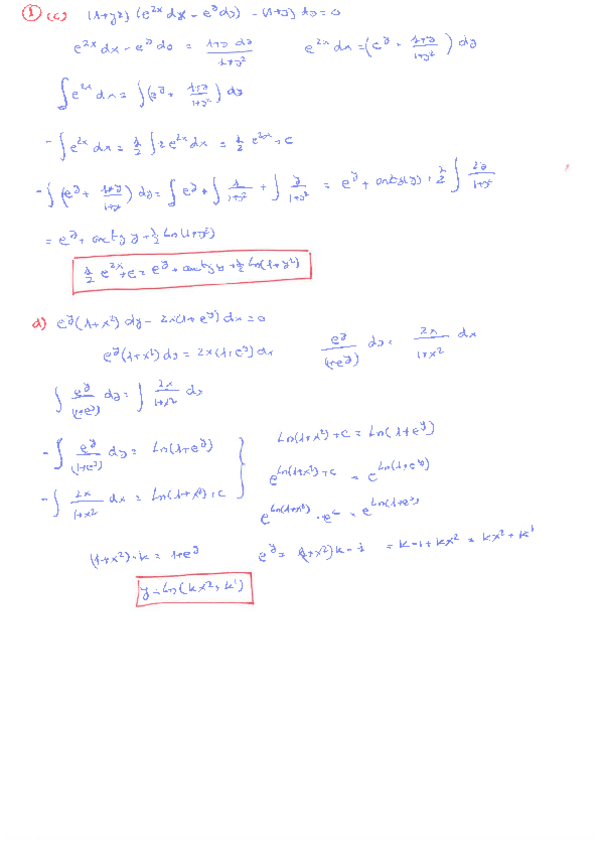 ① (c) (1+y²) (e^{2x} dx - e^y dy) - (1+y) dy = 0
e^{2x} dx - e^y dy = \frac{1+y dy}{1+y²} e^{2x} dx = (e^y + \frac{1+y}{1+y²}) dy
∫ e^{2x} dx = ∫ (e^y + \frac{1+y}{1+y²}) dy
- ∫ e^{2x} dx = \frac{1}{2} ∫ 2 e^{2x} dx = \frac{1}{2} e^{2x} + C
- ∫ (e^y + \frac{1+y}{1+y²}) dy = ∫ e^y + ∫ \frac{1}{1+y²} + ∫ \frac{y}{1+y²} = e^y + arctg(y) + \frac{1}{2} ∫ \frac{2y}{1+y²}
= e^y + arctg y + \frac{1}{2} Ln(1+y²)
\frac{1}{2} e^{2x} + C = e^y + arctg y + \frac{1}{2} Ln(1+y²)
d) e^y (1+x²) dy - 2x(1+e^y) dx = 0
e^y (1+x²) dy = 2x(1+e^y) dx \frac{e^y}{(1+e^y)} dy = \frac{2x}{1+x²} dx
∫ \frac{e^y}{(1+e^y)} dy = ∫ \frac{2x}{1+x²} dx
- ∫ \frac{e^y}{(1+e^y)} dy = Ln(1+e^y)
- ∫ \frac{2x}{1+x²} dx = Ln(1+x²) + C
Ln(1+x²) + C = Ln(1+e^y)
e^{Ln(1+x²)+C} = e^{Ln(1+e^y)}
e^{Ln(1+x²)} · e^C = e^{Ln(1+e^y)}
(1+x²)·k = 1+e^y e^y = (1+x²)k - 1 = k-1+kx² = kx² + k'
y = Ln(kx² + k')